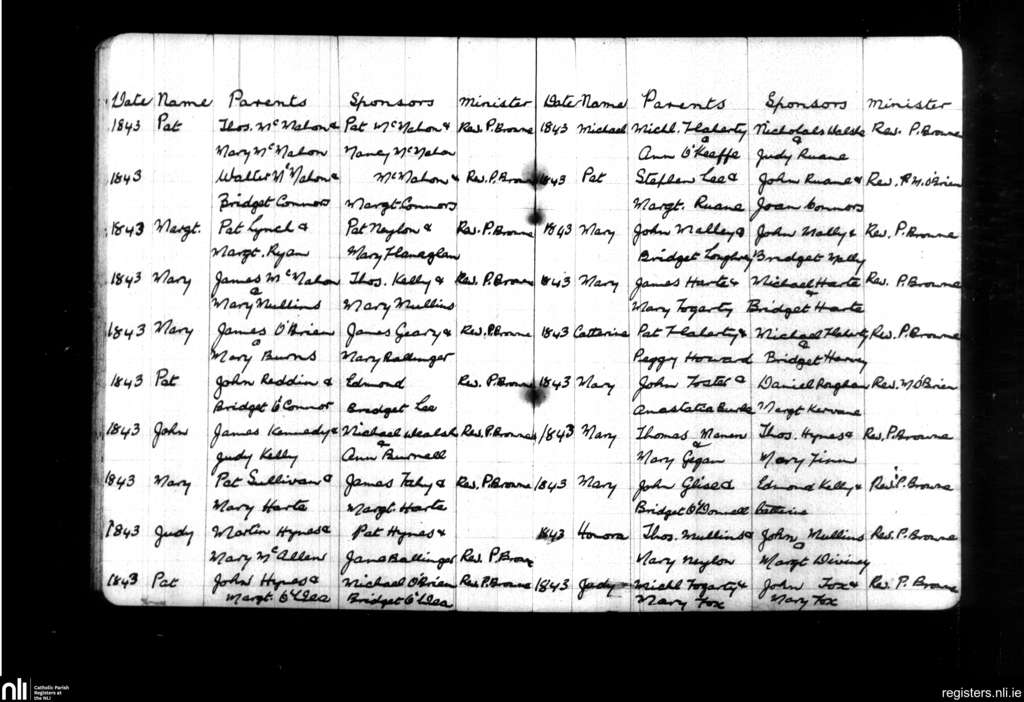 Date Name Parents Sponsors Minister
1843 Pat Thos. McMahon & Pat McMahon & Rev. P. Browne
Mary McMahon Nancy McMahon
1843 Walter McMahon & McMahon & Rev. P. Browne
Bridget Connors Margt Connors
1843 Margt. Pat Lynch & Pat Neylon & Rev. P. Browne
Margt. Ryan Mary Flanaghan
1843 Mary James McMahon Thos. Kelly & Rev. P. Browne
&
Mary Mullins Mary Mullins
1843 Mary James O'Brian James Geary & Rev. P. Browne
&
Mary Burns Mary Ballinger
1843 Pat John Reddin & Edmond Rev. P. Browne
Bridget O'Connor Bridget Lee
1843 John James Kennedy & Michael Wealsh Rev. P. Browne
&
Judy Kelly Ann Burnell
1843 Mary Pat Sullivan & James Fahy & Rev. P. Browne
Mary Harte Margt. Harte
1843 Judy Martin Hynes & Pat Hynes &
Mary McAllen Jane Ballinger Rev. P. Browne
1843 Pat John Hynes & Michael O'Brien Rev. P. Browne
Margt. O'Dea Bridget O'Dea
Date Name Parents Sponsors Minister
1843 Michael Michl. Flaherty Nicholals Walshe Rev. P. Browne
& &
Ann O'Keaffe Judy Ruane
1843 Pat Stephen Lee & John Ruane & Rev. M. O'Brien
Margt. Ruane Joan Connors
1843 Mary John Malley & John Mally & Rev. P. Browne
Bridget Loughrey Bridget Mally
1843 Mary James Harte & Michael Harte Rev. P. Browne
&
Mary Fogarty Bridget Harte
1843 Catterine Pat Flaherty & Michael Flaherty Rev. P. Browne
&
Peggy Howard Bridget Harvey
1843 Mary John Foster & Daniel Roughan Rev. M O'Brien
Anastatia Burke Margt Kervane
1843 Mary Thomas Thos. Hynes & Rev. P. Browne
&
Mary Gegan Mary Finn
1843 Mary John & Edmond Kelly & Rev. P. Browne
Bridget O'Donnell Catterine
1843 Honora Thos. Mullins & John Mullins Rev. P. Browne
&
Mary Neylon Margt Diviney
1843 Judy Michl Fogarty & John Fox & Rev. P. Browne
Mary Fox Mary Fox
nli Catholic Parish
Registers at
the NLI
registers.nli.ie